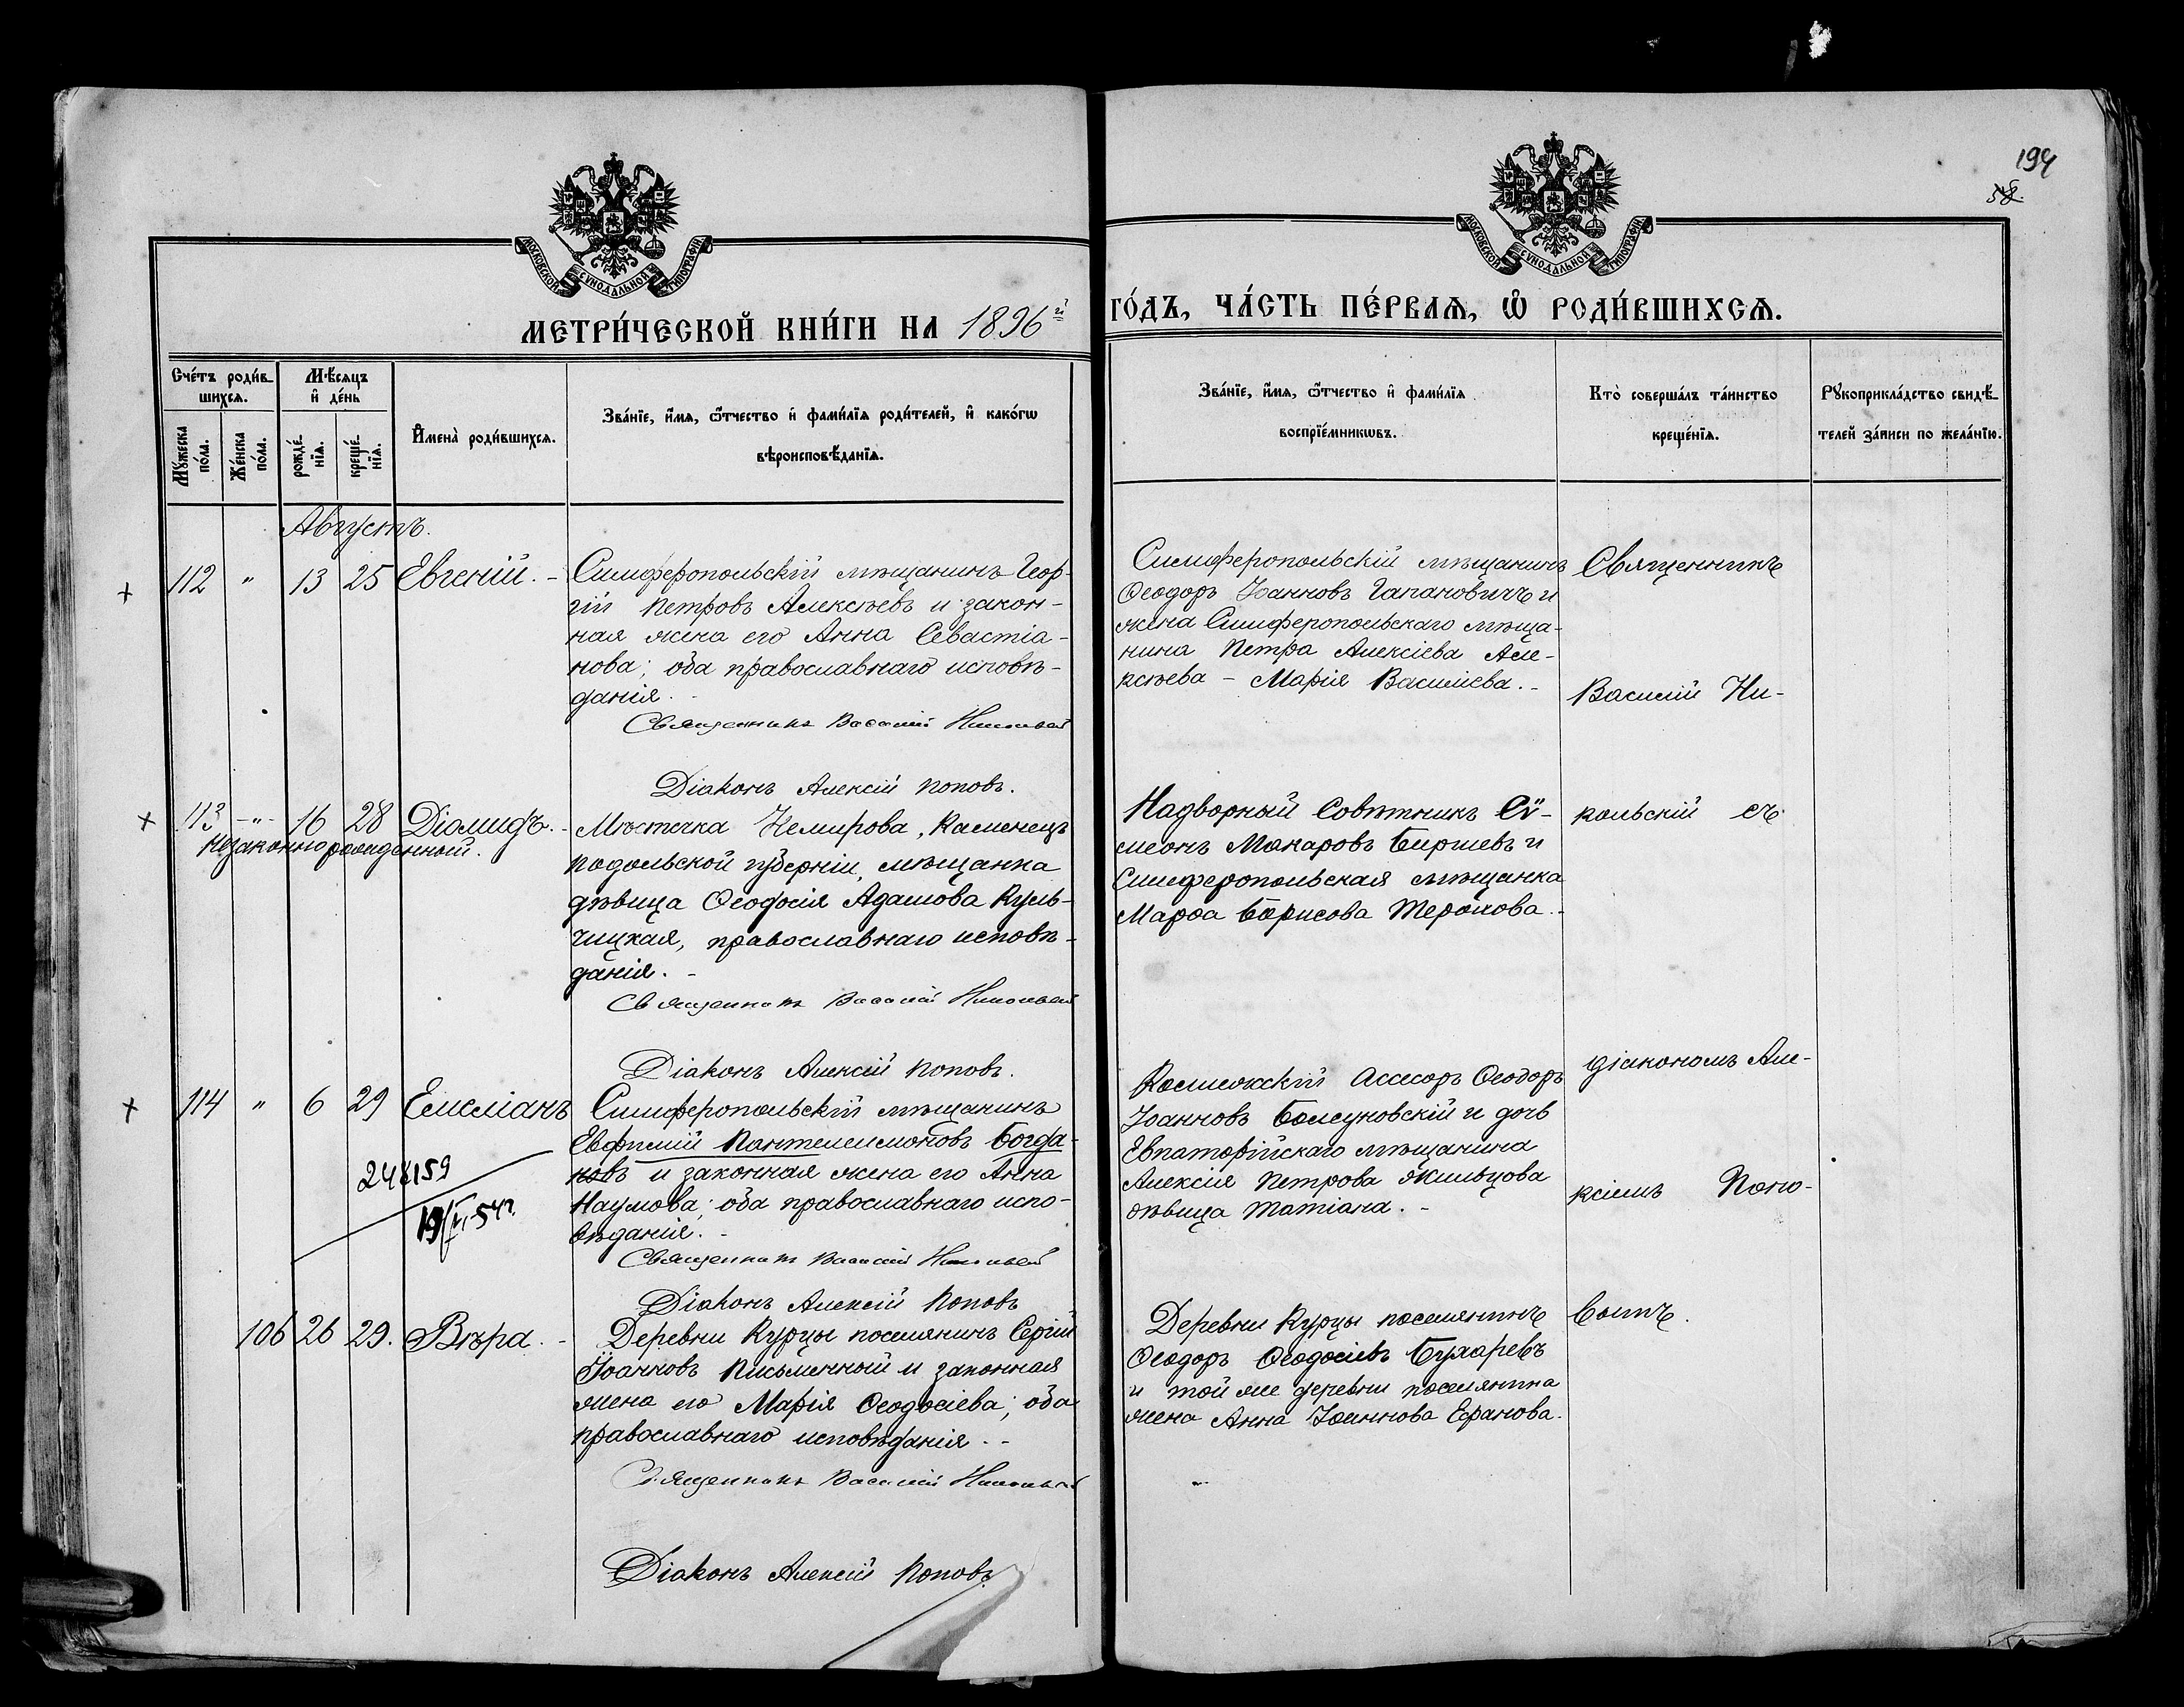 194
58.
МОСКОВСКОЙ СѴНОДАЛЬНОЙ ТИПОГРАФІИ
МОСКОВСКОЙ СѴНОДАЛЬНОЙ ТИПОГРАФІИ
МЕТРИ́ЧЕСКОЙ КНИ́ГИ НА 1896й
ГО́ДЪ, ЧА́СТЬ ПЕ́РВАѦ, Ѡ҆ РОДИ́ВШИХСѦ.
Сче́тъ роди́в-
шихсѧ.
Мѣ́сѧцъ
и҆ де́нь
Мꙋ́жеска
по́ла.
Же́нска
по́ла.
рожде́-
нїѧ.
креще́-
нїѧ.
И҆мена̀ роди́вшихсѧ.
Зва́нїе, и҆́мѧ, ѻ҆́тчество и҆ фами́лїѧ роди́телей, и҆ како́гѡ
вѣроисповѣ́данїѧ.
Зва́нїе, и҆́мѧ, ѻ҆́тчество и҆ фами́лїѧ
воспрїе́мникѡвъ.
Кто̀ соверша́лъ та́инство
креще́нїѧ.
Рꙋкоприкла́дство свидѣ́-
телей за́писи по жела́нїю.
Августъ.
112 " 13 25 Евгеній. -
Симферопольскій мѣщанинъ Геор-
гій Петровъ Алексѣевъ и закон-
ная жена его Анна Севастіа-
нова; оба православнаго исповѣ-
данія.
Священникъ Василій Никольскій
Діаконъ Алексій Поповъ.
Симферопольскій мѣщанинъ
Ѳеодоръ Іоанновъ Гапановичъ и
жена Симферопольскаго мѣща-
нина Петра Алексіева Але-
ксѣева - Марія Василіева. -
Священникъ
Василій Ни-
113 -"- 16 28 Діомидъ. -
незаконнорожденный.
Мѣстечка Немирова, Каменецъ
Подольской губерніи, мѣщанка
дѣвица Ѳеодосія Адамова Куль-
чицкая, православнаго исповѣ-
данія. -
Священникъ Василій Никольскій
Діаконъ Алексій Поповъ.
Надворный Совѣтникъ Сѵ-
меонъ Макаровъ Биршевъ и
Симферопольская мѣщанка
Марѳа Борисова Терохова. -
кольскій съ
114 " 6 29 Емеліанъ
248159
Симферопольскій мѣщанинъ
Евфимій Пантелеимоновъ Богда-
новъ и законная жена его Анна
Наумова; оба православнаго испо-
вѣданія. -
Священникъ Василій Никольскій
Діаконъ Алексій Поповъ
Коллежскій Ассесоръ Ѳеодоръ
Іоанновъ Болсуновскій и дочь
Евпаторійскаго мѣщанина
Алексія Петрова Жильцова
дѣвица Татіана. -
діакономъ Але-
ксіемъ Попо-
106 26 29. Вѣра. -
Деревни Курцы поселянинъ Сергій
Іоанновъ Письменный и законная
жена его Марія Ѳеодосіева; оба
православнаго исповѣданія. -
Священникъ Василій Никольскій
Діаконъ Алексій Поповъ.
Деревни Курцы поселянинъ
Ѳеодоръ Ѳеодосіевъ Бухаревъ
и той же деревни поселянина
жена Анна Іоаннова Ефанова.
вымъ.